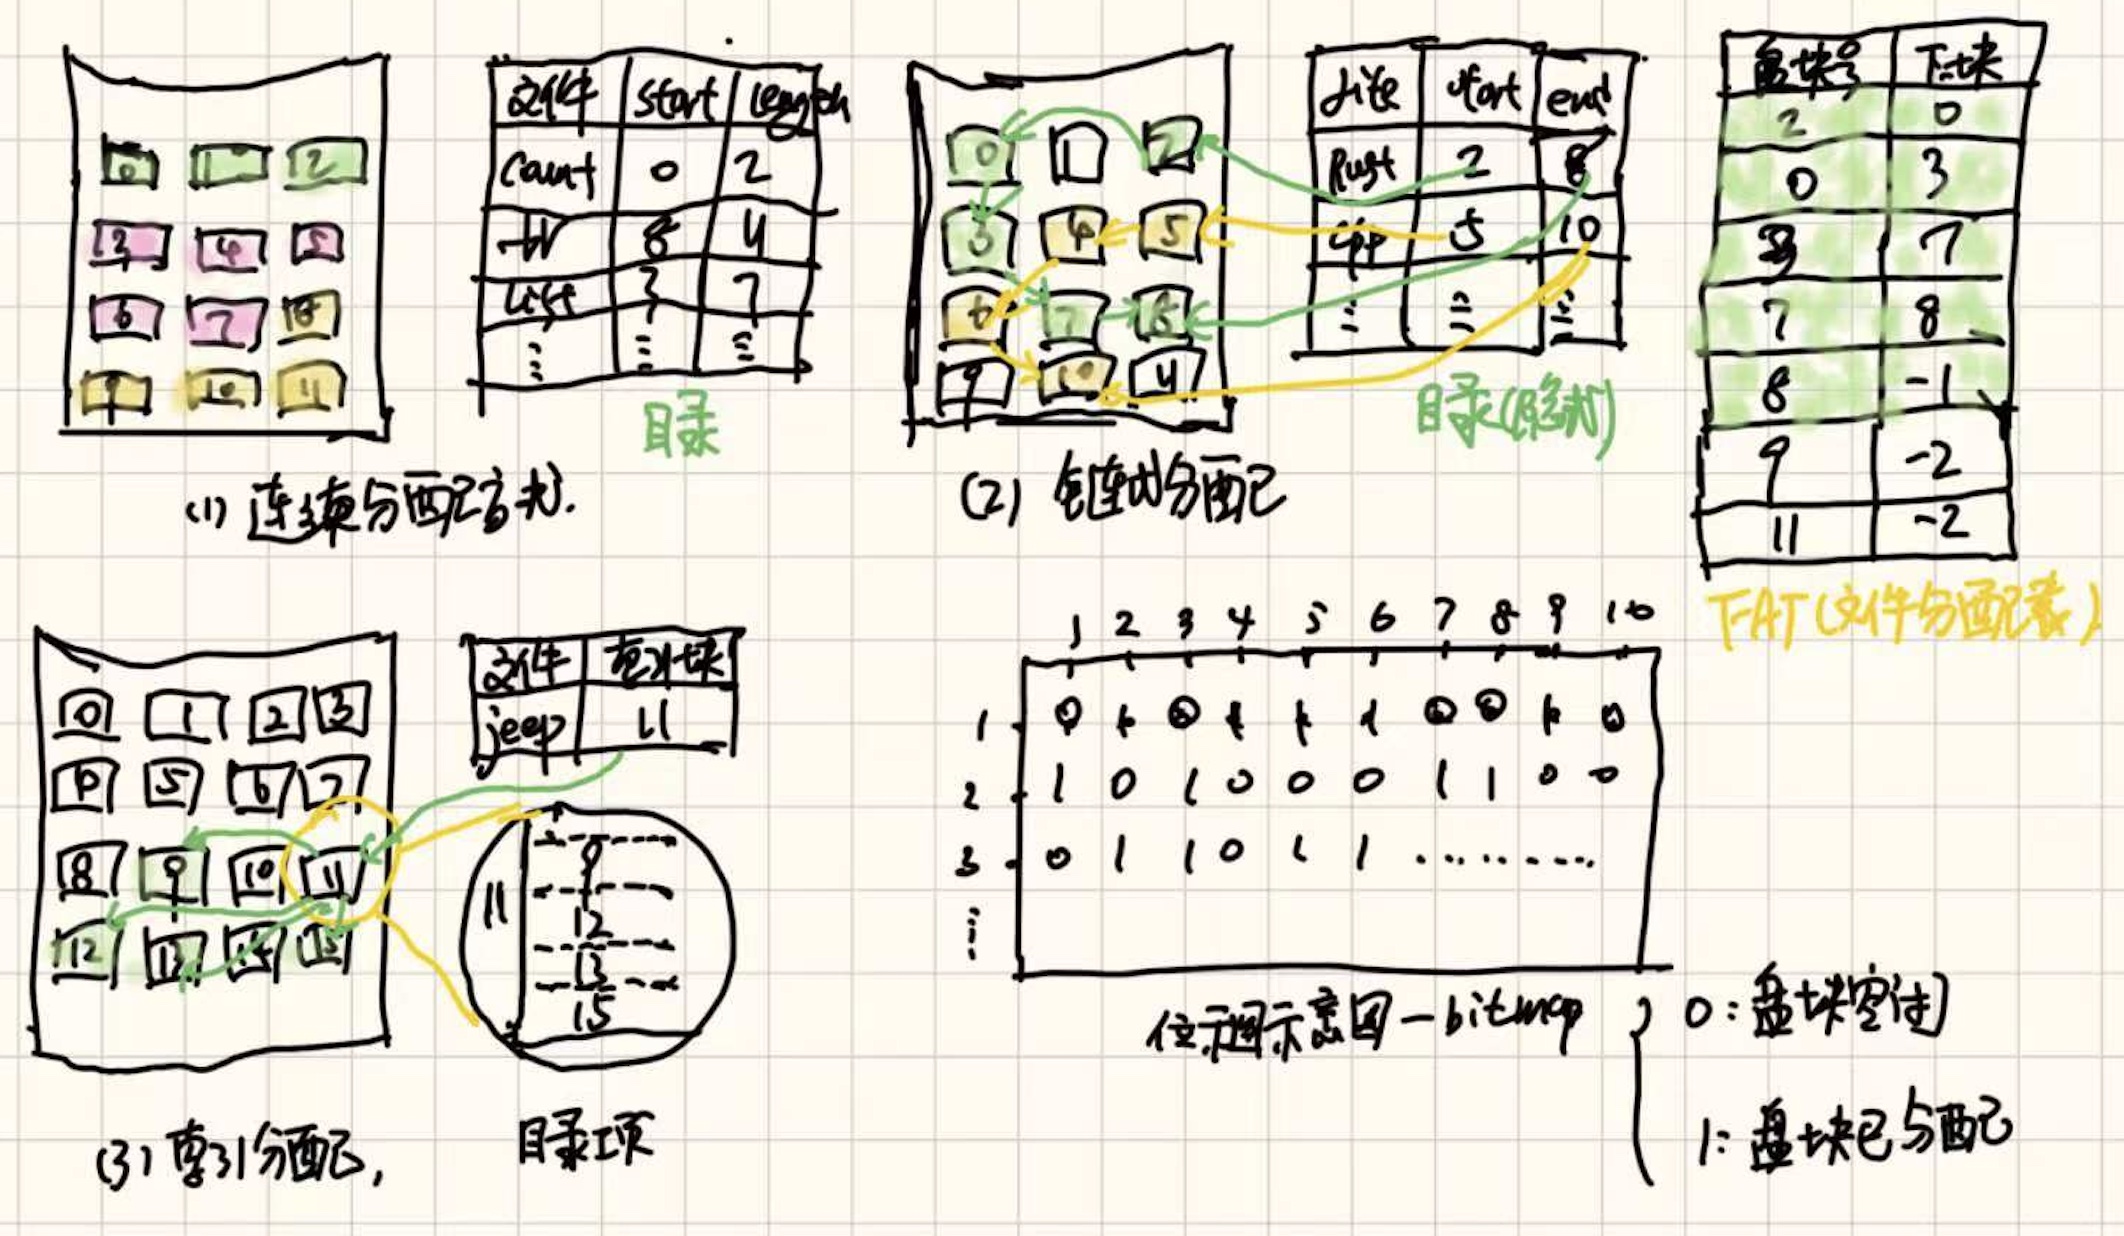 0 1 2
3 4 5
6 7 8
9 10 11
文件 start length
count 0 2
tr 8 4
list 3 7
目录
(1) 连续分配方式.
0 1 2
3 4 5
6 7 8
9 10 11
file start end
Rust 2 8
cpp 5 10
目录(隐式)
(2) 链式分配
盘块号 下一块
2 0
0 3
3 7
7 8
8 -1
9 -2
11 -2
FAT(文件分配表)
0 1 2 3
4 5 6 7
8 9 10 11
12 13 14 15
文件 索引块
jeep 11
11
9
12
13
15
(3) 索引分配,
目录项
1 2 3 4 5 6 7 8 9 10
1 0 1 0 1 1 1 0 0 1 0
2 1 0 1 0 0 0 1 1 0 0
3 0 1 1 0 1 1 .........
位示图示意图-bitmap
0:盘块空闲
1:盘块已分配